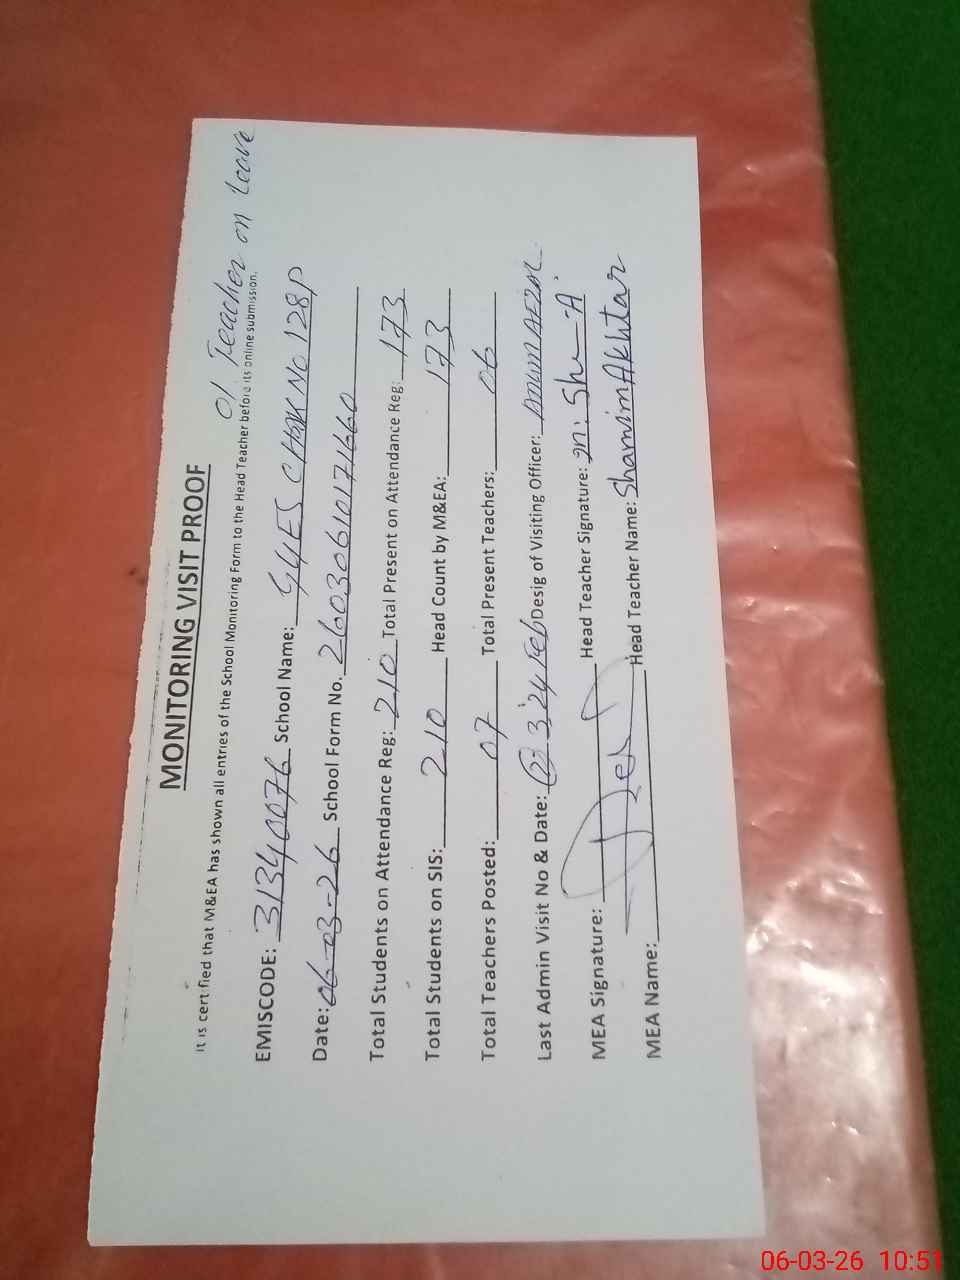 MONITORING VISIT PROOF
01 Teacher on Leave
It is certified that M&EA has shown all entries of the School Monitoring Form to the Head Teacher before its online submission.
EMISCODE: 31340076 School Name: GGES CHAK NO 128P
Date: 06-03-26 School Form No. 26030610171660
Total Students on Attendance Reg: 210 Total Present on Attendance Reg: 173
Total Students on SIS: 210 Head Count by M&EA: 173
Total Teachers Posted: 07 Total Present Teachers: 06
Last Admin Visit No & Date: 3, 24 Feb Desig of Visiting Officer:
MEA Signature: Head Teacher Signature:
MEA Name: Head Teacher Name: Shamim Akhtar
06-03-26 10:51